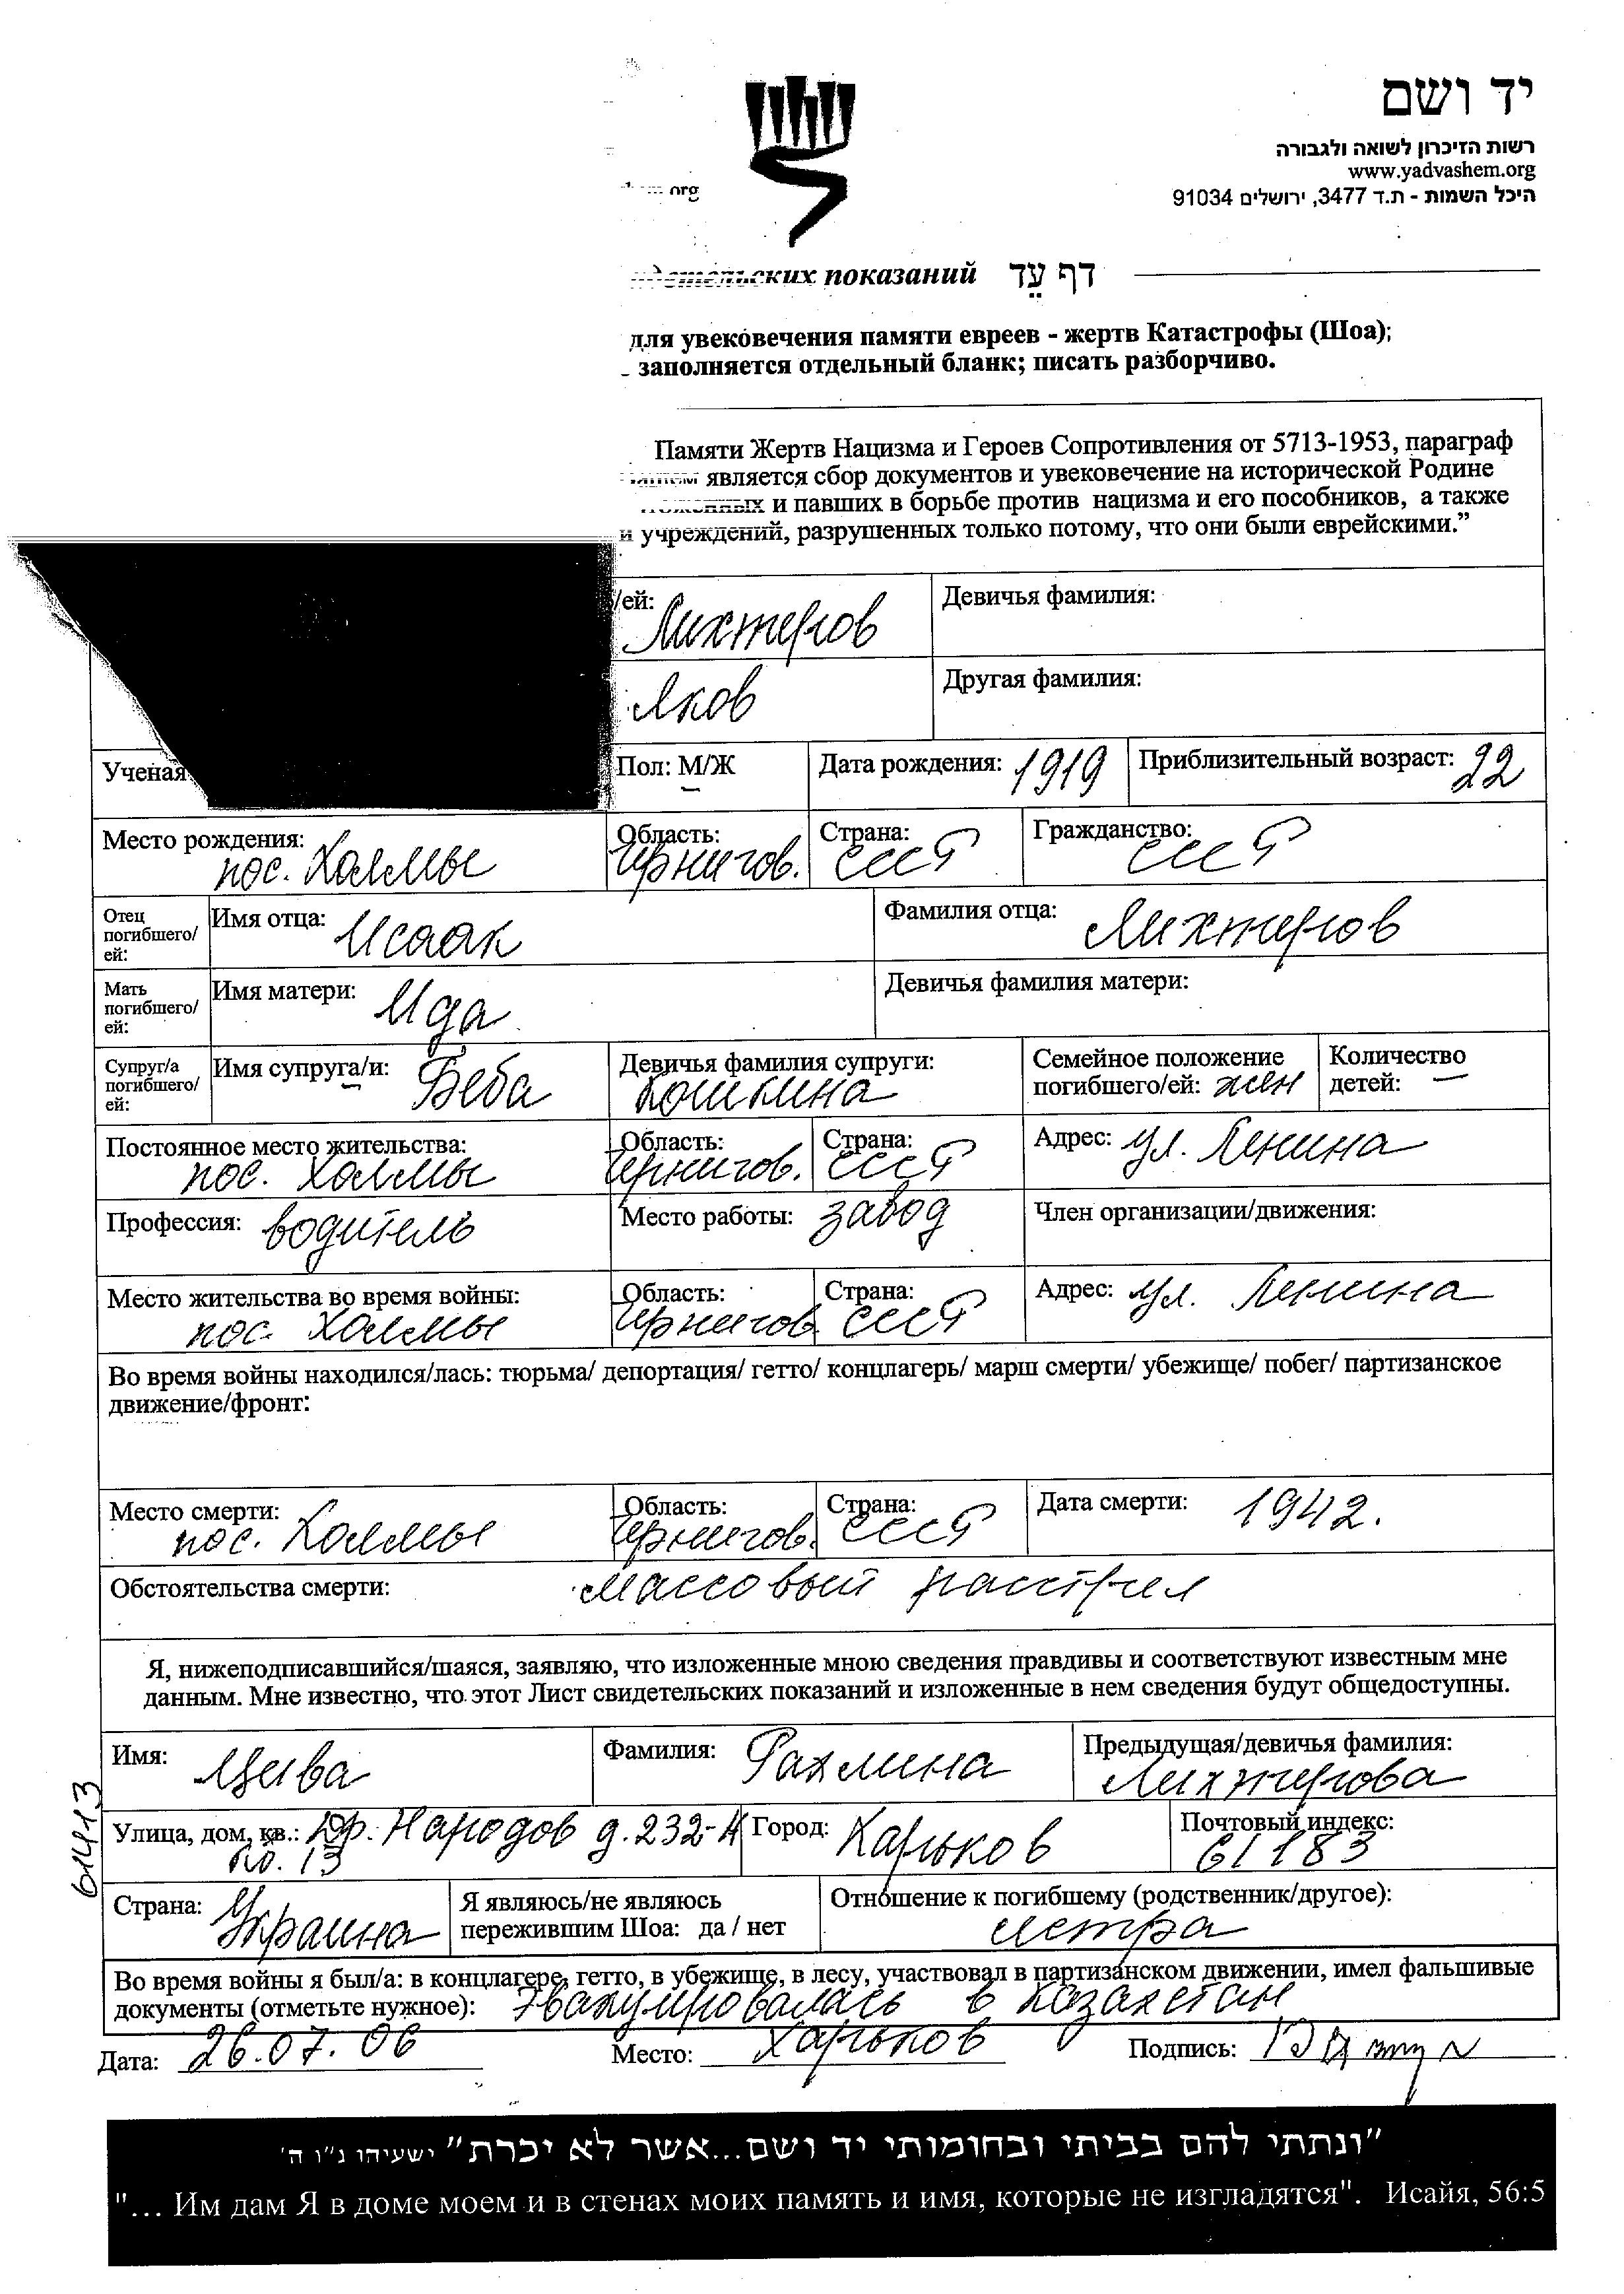 יד ושם
רשות הזיכרון לשואה ולגבורה
www.yadvashem.org
היכל השמות - ת.ד 3477, ירושלים 91034
org
показаний דף עֵד
для увековечения памяти евреев - жертв Катастрофы (Шоа);
заполняется отдельный бланк; писать разборчиво.
Памяти Жертв Нацизма и Героев Сопротивления от 5713-1953, параграф
является сбор документов и увековечение на исторической Родине
и павших в борьбе против нацизма и его пособников, а также
и учреждений, разрушенных только потому, что они были еврейскими.”
/ей: Лихтеров Девичья фамилия:
Яков Другая фамилия:
Ученая Пол: М/Ж Дата рождения: 1919 Приблизительный возраст: 22
Место рождения: Область: Страна: Гражданство:
пос. Холмы Чернигов. СССР СССР
Отец погибшего/ей: Имя отца: Исаак Фамилия отца: Лихтеров
Мать погибшего/ей: Имя матери: Ида Девичья фамилия матери:
Супруг/а погибшего/ей: Имя супруга/и: Беба Девичья фамилия супруги: Кошкина Семейное положение погибшего/ей: жен Количество детей: —
Постоянное место жительства: Область: Страна: Адрес: ул. Ленина
пос. Холмы Чернигов. СССР
Профессия: водитель Место работы: завод Член организации/движения:
Место жительства во время войны: Область: Страна: Адрес: ул. Ленина
пос. Холмы Чернигов. СССР
Во время войны находился/лась: тюрьма/ депортация/ гетто/ концлагерь/ марш смерти/ убежище/ побег/ партизанское
движение/фронт:
Место смерти: Область: Страна: Дата смерти: 1942.
пос. Холмы Чернигов. СССР
Обстоятельства смерти: массовый расстрел
Я, нижеподписавшийся/шаяся, заявляю, что изложенные мною сведения правдивы и соответствуют известным мне
данным. Мне известно, что этот Лист свидетельских показаний и изложенные в нем сведения будут общедоступны.
Имя: Цива Фамилия: Рахлина Предыдущая/девичья фамилия:
Лихтерова
61413
Улица, дом, кв.: Др. Народов д. 232-А Город: Харьков Почтовый индекс:
кв. 13 61183
Страна: Украина Я являюсь/не являюсь Отношение к погибшему (родственник/другое):
пережившим Шоа: да / нет сестра
Во время войны я был/а: в концлагере, гетто, в убежище, в лесу, участвовал в партизанском движении, имел фальшивые
документы (отметьте нужное): Эвакуировалась в Казахстан
Дата: 26.07.06 Место: Харьков Подпись:
"ונתתי להם בביתי ובחומותי יד ושם...אשר לא יכרת" ישעיהו נ"ו ה'
"... Им дам Я в доме моем и в стенах моих память и имя, которые не изгладятся". Исайя, 56:5